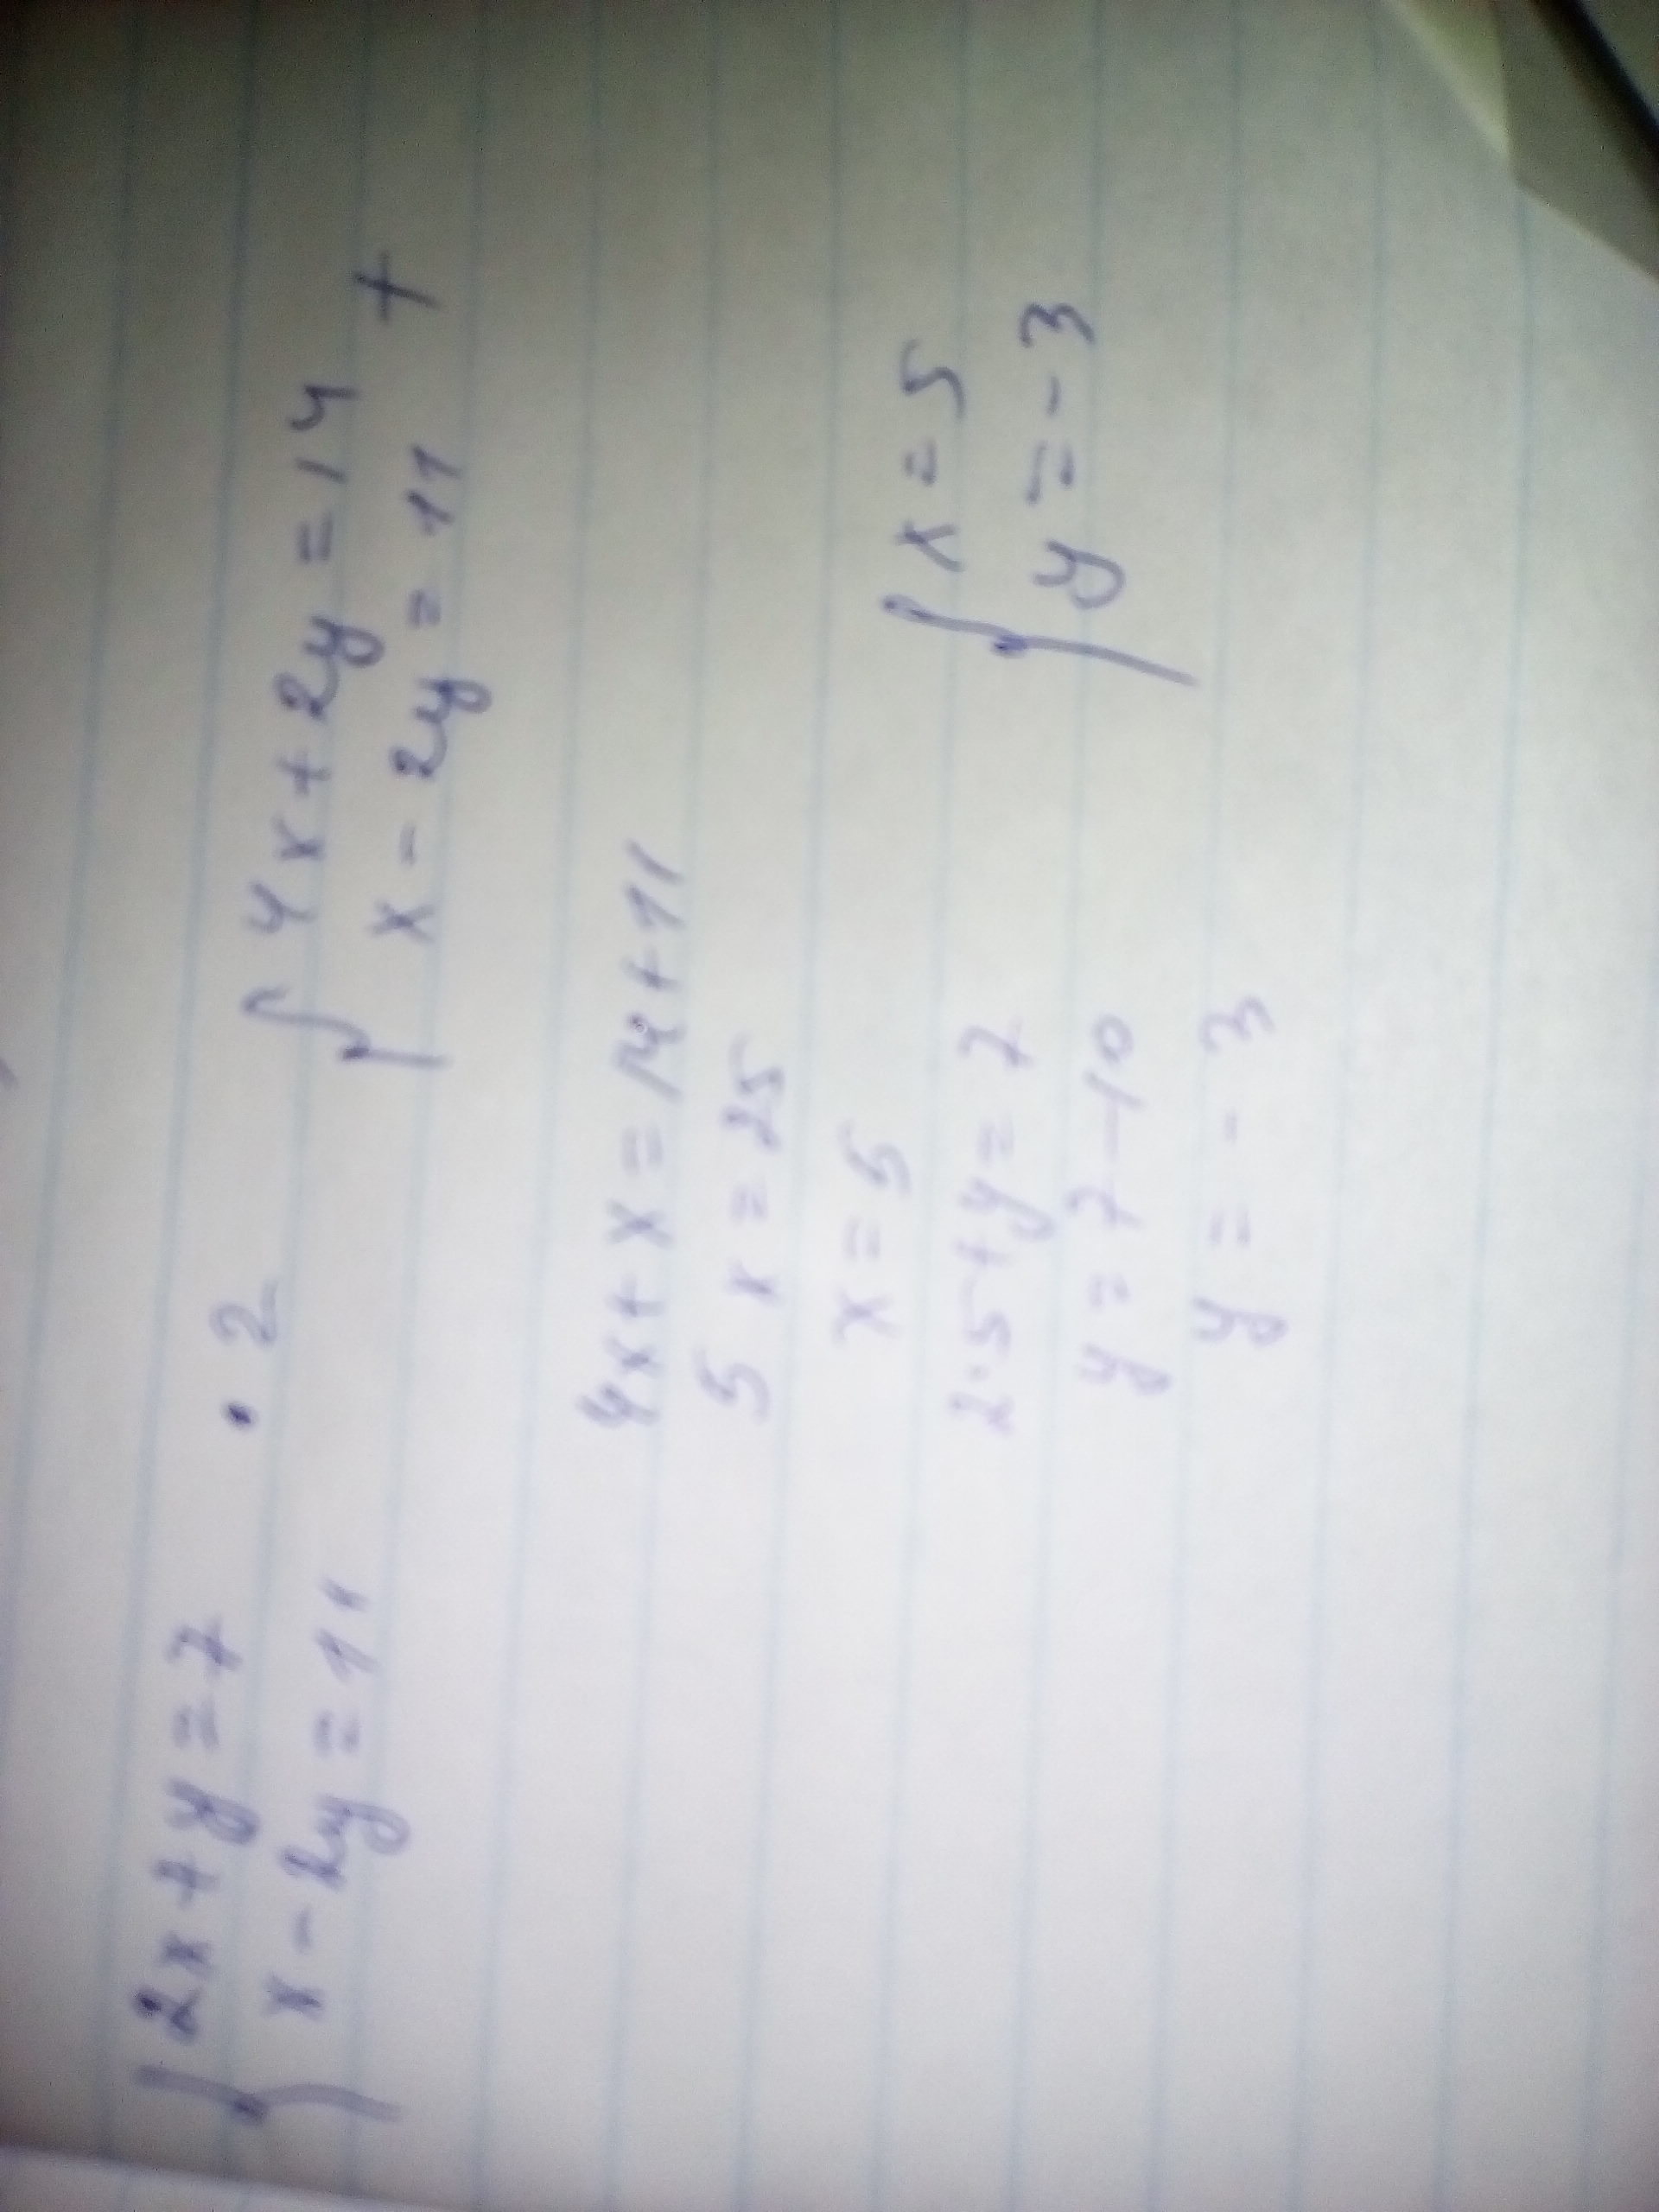 { 2x + y = 7 · 2
x - 2y = 11
{ 4x + 2y = 14
x - 2y = 11 +
4x + x = 14 + 11
5x = 25
x = 5
2·5 + y = 7
y = 7 - 10
y = - 3
{ x = 5
y = - 3